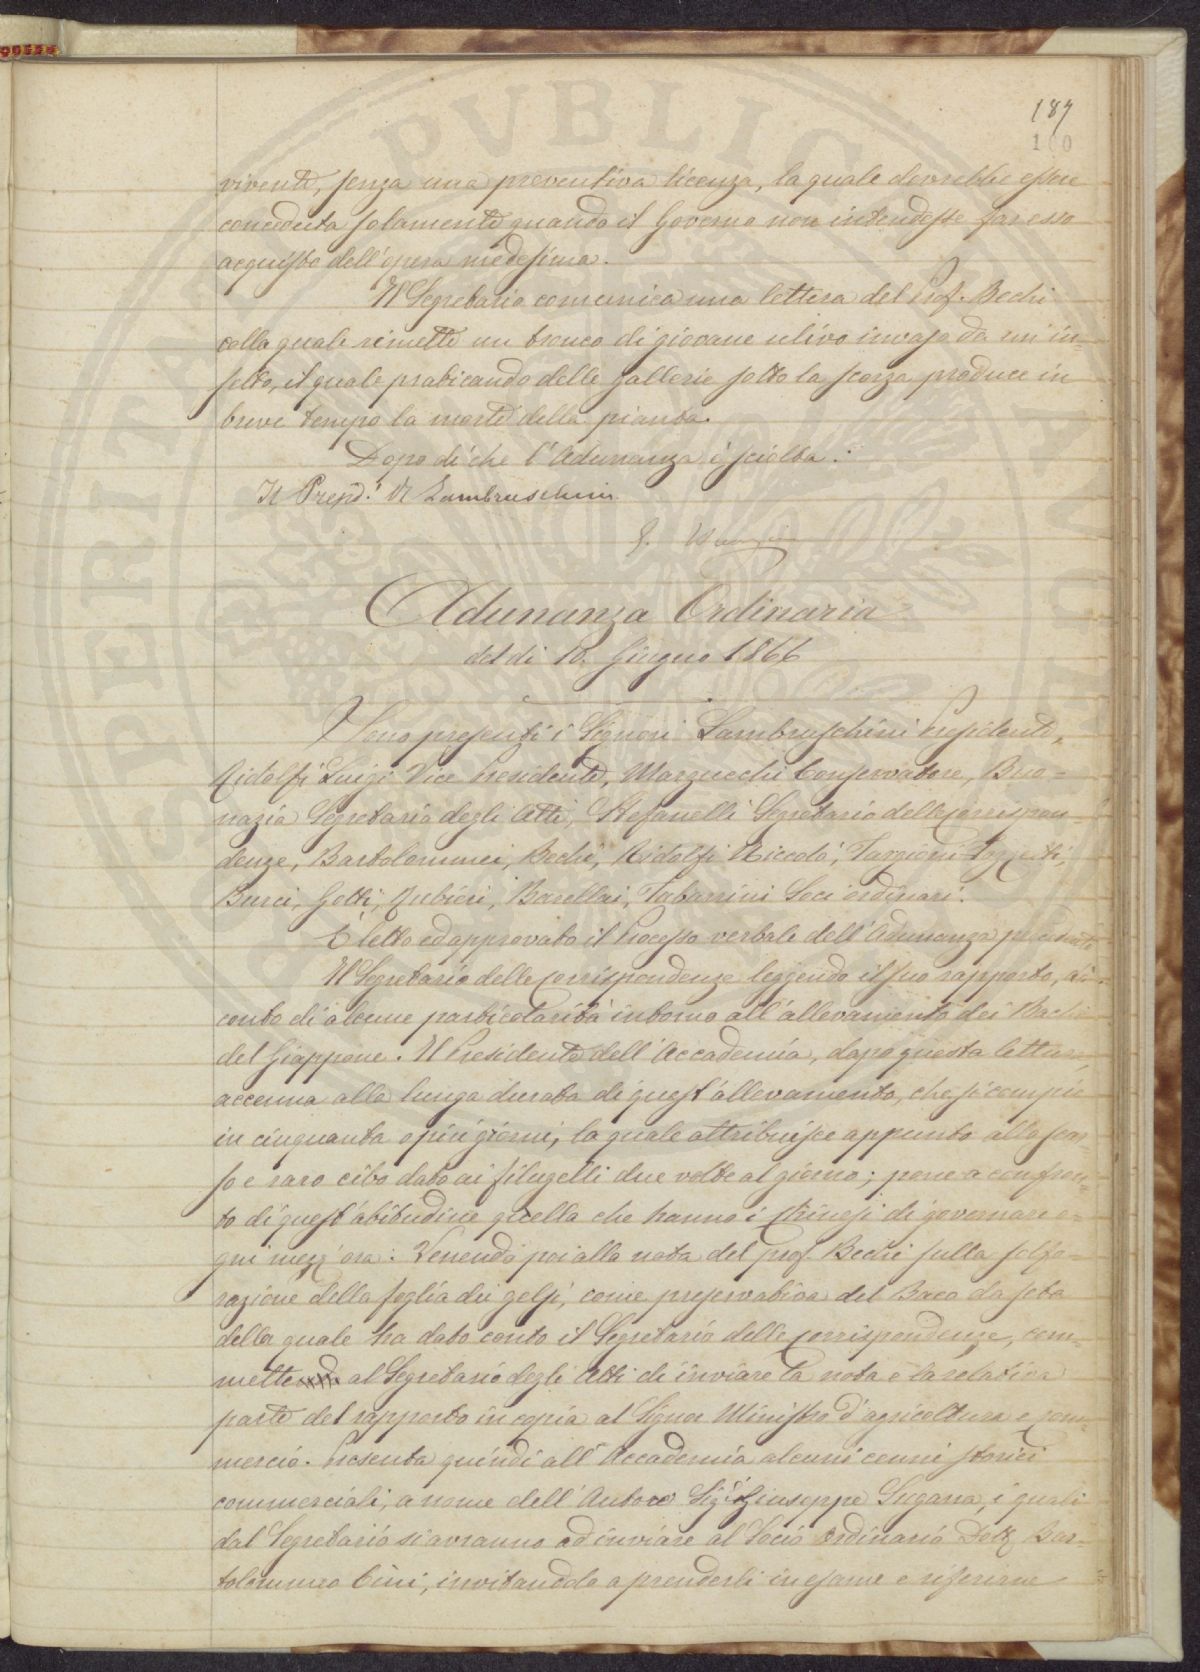 187
100
vivente, senza una preventiva licenza, la quale dovrebbe essere
conceduta solamente quando il Governo non intendesse far esso
acquisto dell'opera medesima.
Il Segretario comunica una lettera del Prof. Bechi
colla quale rimette un tronco di giovane ulivo invaso da un in-
setto, il quale praticando delle gallerie sotto la scorza produce in
breve tempo la morte della pianta.
Dopo di che l'Adunanza è sciolta.
Il Presid.e R Lambruschini
Adunanza Ordinaria
del di 10. Giugno 1866
Sono presenti i Signori Lambruschini Presidente,
Ridolfi Luigi Vice Presidente, Marzucchi Conservatore, Buo-
nazia Segretario degli Atti, Stefanelli Segretario delle Corrispon
denze, Bartolommei, Bechi, Ridolfi Niccolò, Targioni-Tozzetti,
Burci, Gotti, Rubieri, Barellai, Tabarrini Soci ordinari.
È letto ed approvato il Processo verbale dell'Adunanza precedente
Il Segretario delle Corrispondenze leggendo il suo rapporto, dà
conto di alcune particolarità intorno all'allevamento dei Bachi
del Giappone. Il Presidente dell'Accademia, dopo questa lettura,
accenna alla lunga durata di quest'allevamento, che si compie
in cinquanta o più giorni, la quale attribuisce appunto allo scar
so e raro cibo dato ai filugelli due volte al giorno; pone a confron-
to di quest'abitudine quella che hanno i Chinesi di governare o-
gni mezz'ora. Venendo poi alla nota del prof. Bechi sulla solfo-
razione della foglia dei gelsi, come preservativo del Baco da seta
della quale ha dato conto il Segretario delle Corrispondenze, com-
mette al Segretario degli Atti di inviare la nota e la relativa
parte del rapporto in copia al Signor Ministro d'agricoltura e com
mercio. Presenta quindi all'Accademia alcuni cenni storici
commerciali, a nome dell'Autore Sig. Giuseppe Sugana, i quali
dal Segretario si avranno ad inviare al Socio Ordinario Dott. Bar-
tolommeo Cini, invitandolo a prenderli in esame e riferirne